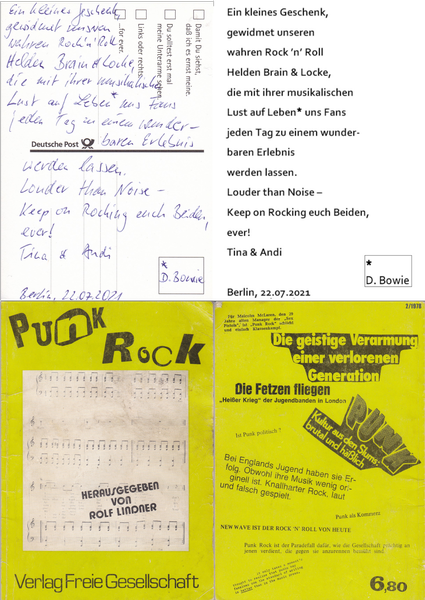 Ein kleines Geschenk,
gewidmet unseren
wahren Rock'n'Roll
Helden Brain & Locke,
die mit ihrer musikalischen
Lust auf Leben* uns Fans
jeden Tag zu einem wunder-
baren Erlebnis
werden lassen.
Louder than Noise –
Keep on Rocing euch Beiden,
ever!
Tina & Andi
Berlin, 22.07.2021
*
D. Bowie
Damit Du siehst,
daß ich es ernst meine.
Du solltest erst mal
meine Unterarme sehen.
Links oder rechts.
...for ever.
Deutsche Post
Ein kleines Geschenk,
gewidmet unseren
wahren Rock 'n' Roll
Helden Brain & Locke,
die mit ihrer musikalischen
Lust auf Leben* uns Fans
jeden Tag zu einem wunder-
baren Erlebnis
werden lassen.
Louder than Noise –
Keep on Rocking euch Beiden,
ever!
Tina & Andi
*
D. Bowie
Berlin, 22.07.2021
Punk
Rock
HERAUSGEGEBEN
VON
ROLF LINDNER
Verlag Freie Gesellschaft
2/1978
Für Malcolm McLaren, den 30
Jahre alten Manager der „Sex
Pistols", ist "Punk Rock" schlicht
und einfach Klassenkampf.
Die geistige Verarmung
einer verlorenen
Generation
Die Fetzen fliegen
„Heißer Krieg" der Jugendbanden in London
PUNK
Kultur aus den Slums:
brutal und häßlich
Ist Punk politisch ?
Bei Englands Jugend haben sie Er-
folg. Obwohl ihre Musik wenig ori-
ginell ist. Knallharter Rock, laut
und falsch gespielt.
Punk als Konserve
NEW WAVE IST DER ROCK 'N' ROLL VON HEUTE
Punk Rock ist der Paradefall dafür, wie die Gesellschaft prächtig an
jenen verdient, die gegen sie anzurennen bemüht sind.
6,80